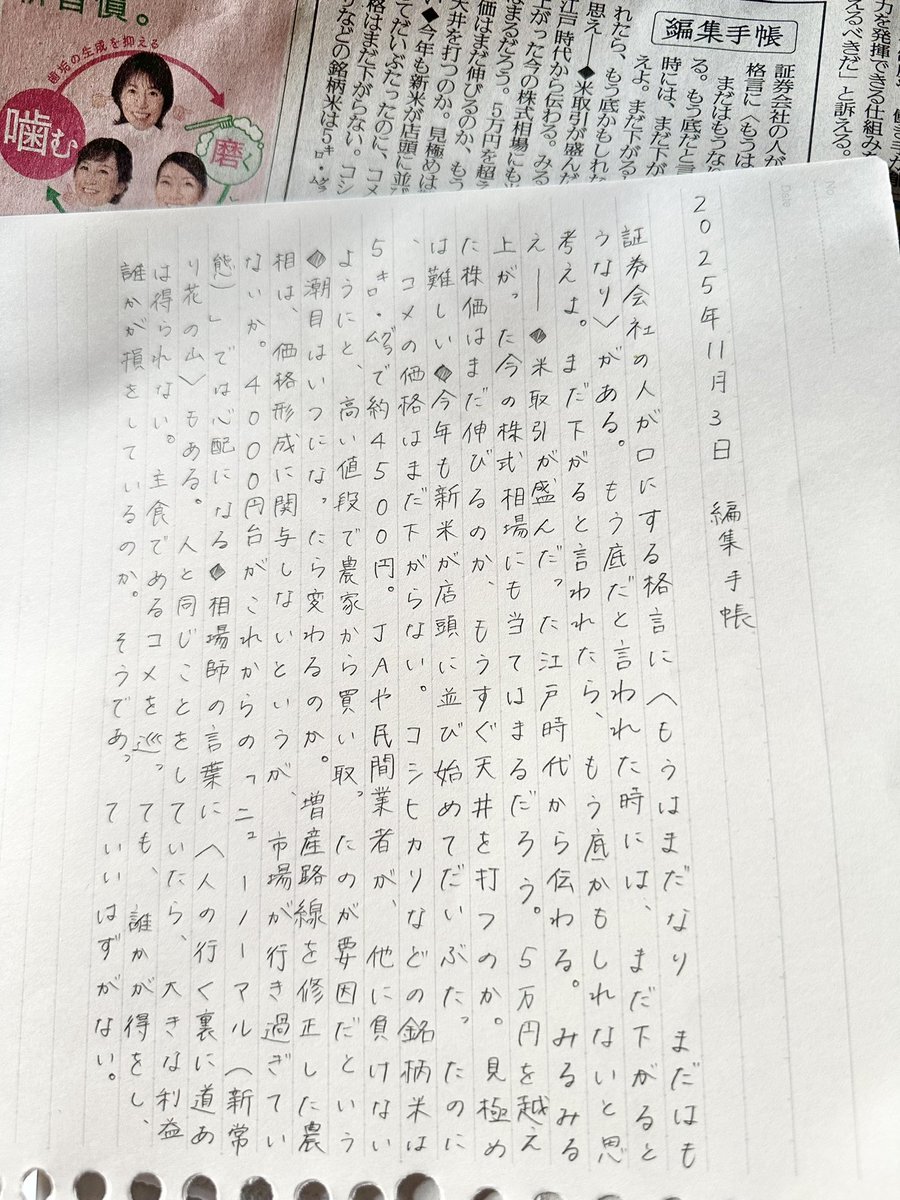 力を発揮できる仕組み
えるべきだ」と訴える。
編集手帳
証券会社の人が
格言に〈もうは
まだはもうな
る。もう底だと言
時には、まだ下が
えよ。まだ下がる
れたら、もう底かもしれな
思え―◆米取引が盛んだ
江戸時代から伝わる。みる
上がった今の株式相場にも
はまるだろう。5万円を超え
価はまだ伸びるのか、もう
天井を打つのか。見極めは
◆今年も新米が店頭に並
てだいぶたったのに、コメ
格はまだ下がらない。コシ
などの銘柄米は5㌔・㌘
習慣。
歯垢の生成を抑える
噛む
磨く
2025年11月3日 編集手帳
証券会社の人が口にする格言に〈もうはまだなり まだはも
うなり〉がある。もう底だと言われた時には、まだ下がると
考えよ。まだ下がると言われたら、もう底かもしれないと思
え――◆米取引が盛んだった江戸時代から伝わる。みるみる
上がった今の株式相場にも当てはまるだろう。5万円を越え
た株価はまだ伸びるのか、もうすぐ天井を打つのか。見極め
は難しい◆今年も新米が店頭に並び始めてだいぶたったのに
、コメの価格はまだ下がらない。コシヒカリなどの銘柄米は
5㌔・㌘で約4500円。JAや民間業者が、他に負けない
ようにと、高い値段で農家から買い取ったのが要因だという
◆潮目はいつになったら変わるのか。増産路線を修正した農
相は、価格形成に関与しないというが、市場が行き過ぎてい
ないか。4000円台がこれからの「ニューノーマル(新常
態)」では心配になる◆相場師の言葉に〈人の行く裏に道あ
り花の山〉もある。人と同じことをしていたら、大きな利益
は得られない。主食であるコメを巡っても、誰かが得をし、
誰かが損をしているのか。そうであっていいはずがない。
No.
Date